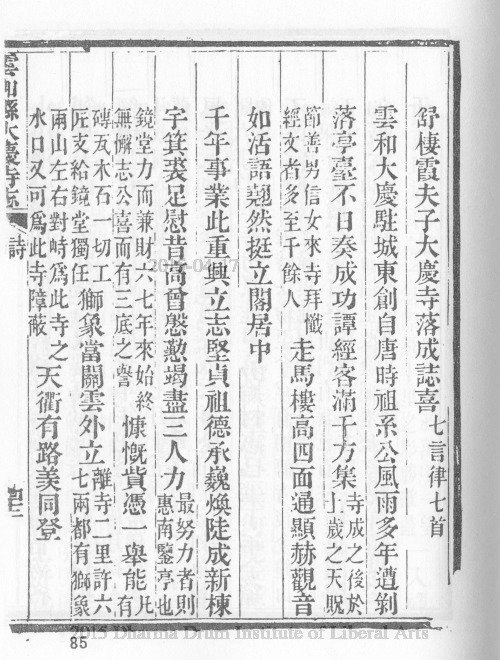 舒棲霞夫子大慶寺落成誌喜 七言律七首
雲和大慶駐城東創自唐時祖系公風雨多年遭剝
落亭臺不日奏成功譚經客滿千方集 寺成之後於
歲之天貺
節善男信女來寺拜懺
經文者多至千餘人 走馬樓高四面通顯赫觀音
如活語翹然挺立閣居中
千年事業此重興立志堅貞祖德承巍煥陡成新棟
宇箕裘足慰昔高曾慇懃竭盡三人力 最努力者則
惠南鑒亭也
鏡堂力而兼財六七年來始終
無懈志公喜而有三底之譽 慷慨貲憑一舉能 凡
有
磚瓦木石一切工
匠支給鏡堂獨任 獅象當關雲外立 離寺二里許六
七兩都有獅象
兩山左右對峙爲此寺之
水口又可爲此寺障蔽 天衢有路羡同登
雲和縣大慶寺志
詩
85
2015 Dharma Drum Institute of Liberal Arts